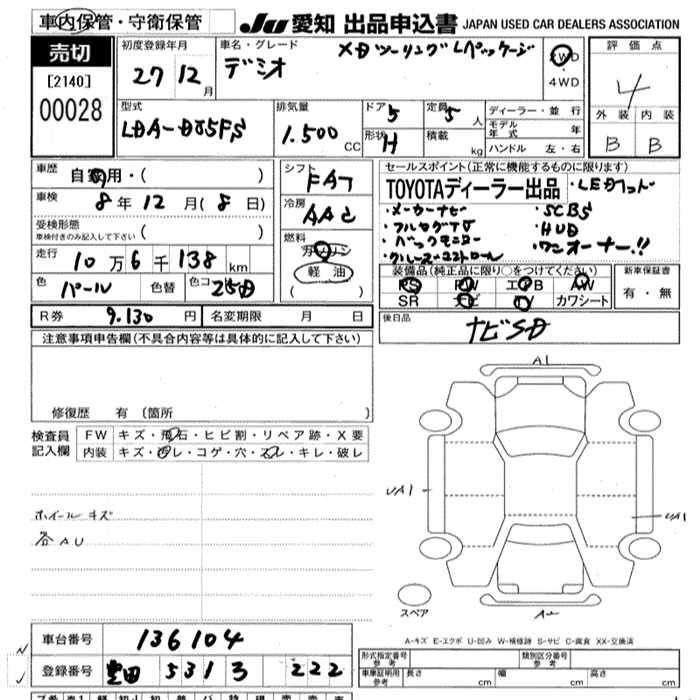 車内保管・守衛保管
JU 愛知 出品申込書 JAPAN USED CAR DEALERS ASSOCIATION
売切
[2140]
00028
初度登録年月
27 12月
車名・グレード
デミオ XDツーリングLパッケージ
2WD
・
4WD
評価点
4
外装 内装
B B
型式
LDA-DJ5FS
排気量
1.500 CC
ドア 5
形状 H
定員 5人
積載 kg
ディーラー・並行
モデル年式 年
ハンドル 左・右
車歴 自家用・( )
車検 8年 12月 (8日)
受検形態
車検付きのみ記入して下さい ( )
走行 10万6千138km
色 パール 色替 色コ 25D
シフト FAT
冷房 AAC
燃料
ガソリン
軽油
( )
セールスポイント(正常に機能するものに限ります)
TOYOTAディーラー出品 ・LEDヘッド
・メーカーナビ ・SCBS
・フルセグTV ・HUD
・バックモニター ・ワンオーナー!!
・クルーズコントロール
装備品(純正品に限り○をつけてください)
PS PW エアB AW
SR ナビ TV カワシート
新車保証書
有・無
R券 9.130円 名変期限 月 日
後日品 ナビSD
注意事項申告欄(不具合内容等は具体的に記入して下さい)
修復歴 有 〔箇所 〕
検査員記入欄
FW キズ・飛石・ヒビ割・リペア跡・X要
内装 キズ・汚レ・コゲ・穴・スレ・キレ・破レ
ホイールキズ
各AU
A1
UA1
UA1
A2
スペア
A-キズ E-エクボ U-凹み W-補修跡 S-サビ C-腐食 XX-交換済
車台番号 136104
登録番号 豊田 531 ろ 222
形式指定番号
参考
類別区分番号
参考
車庫証明用
参考
長さ cm 幅 cm 高さ cm